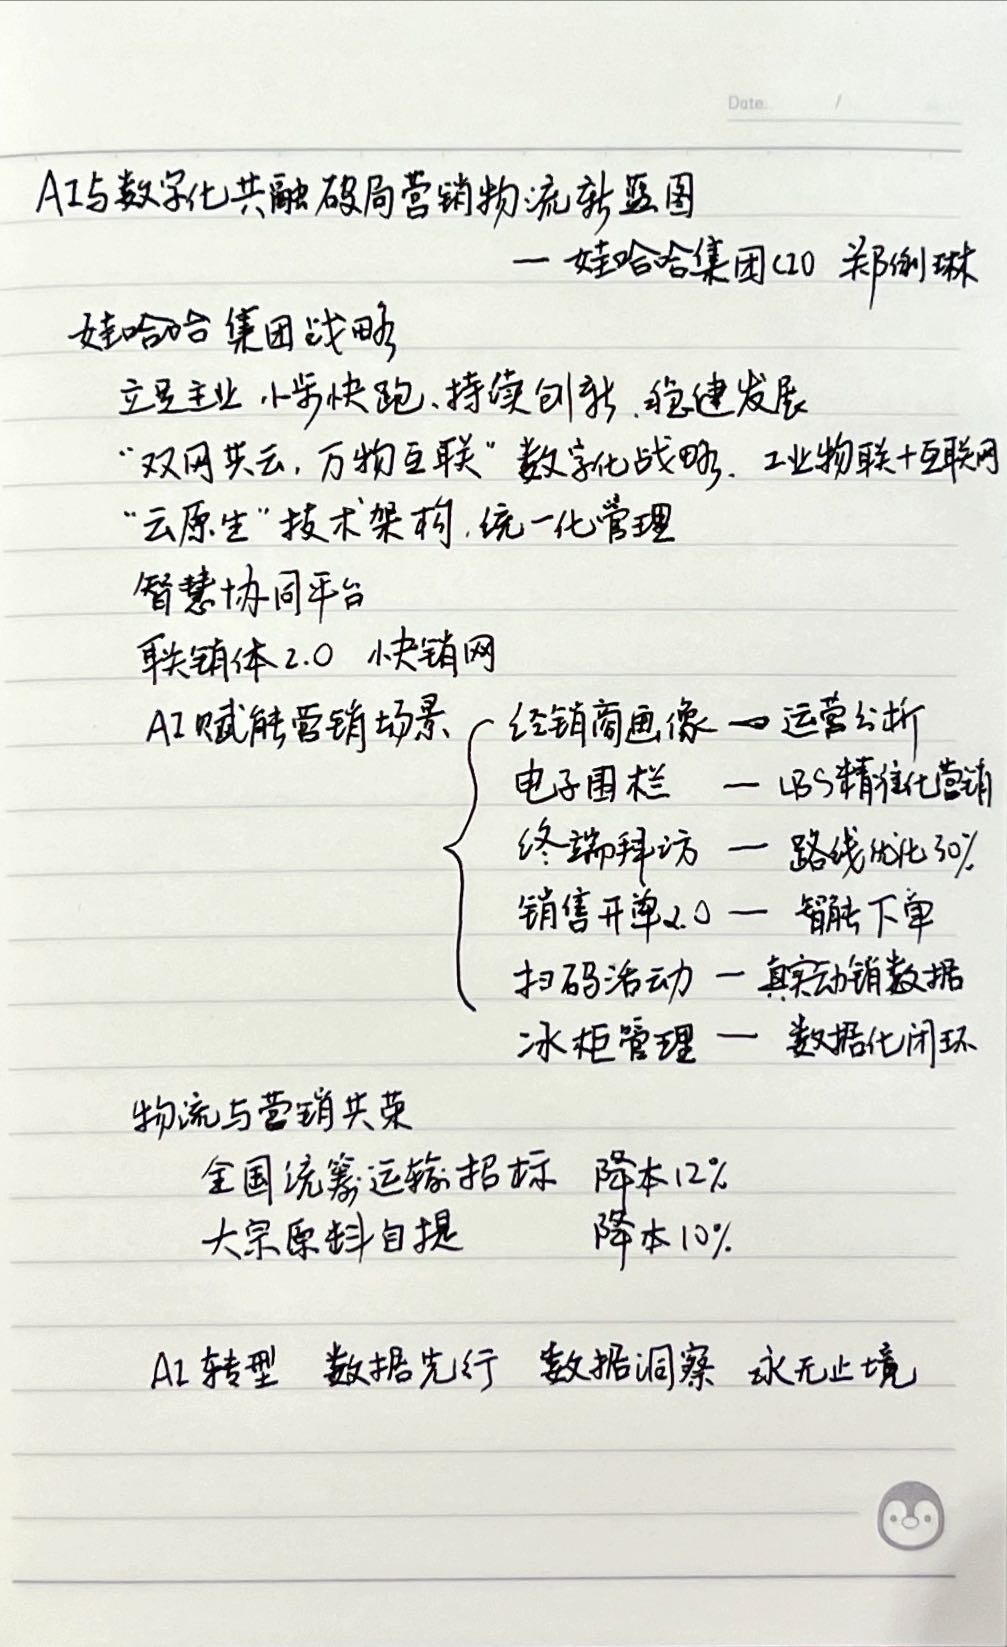 Date.      /
AI与数字化共融破局营销物流新蓝图
— 娃哈哈集团CIO 郑俐琳
娃哈哈集团战略
立足主业、小步快跑、持续创新、稳健发展
“双网共云，万物互联”数字化战略、工业物联+互联网
“云原生”技术架构，统一化管理
智慧协同平台
联销体2.0 快销网
AI赋能营销场景 { 经销商画像 → 运营分析
电子围栏 — LBS精准化营销
终端拜访 — 路线优化30%
销售开单2.0 — 智能下单
扫码活动 — 真实动销数据
冰柜管理 — 数据化闭环
物流与营销共荣
全国统筹运输招标 降本12%
大宗原料自提 降本10%
AI转型 数据先行 数据洞察 永无止境